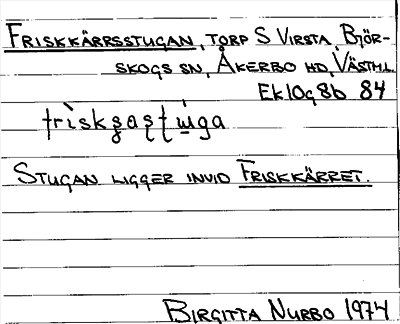 FRISKKÄRRSSTUGAN, TORP S VIRSTA, BJÖR-
SKOGS SN, ÅKERBO HD, VÄSTML.
Ek 10g8b 84
STUGAN LIGGER INVID FRISKKÄRRET.
BIRGITTA NURBO 1974